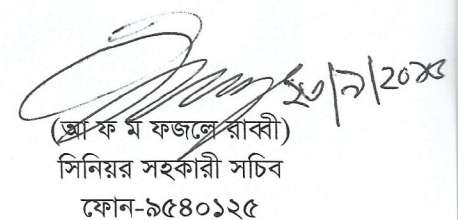 (আ ফ ম ফজলে রাব্বী)
সিনিয়র সহকারী সচিব
ফোন-৯৫৪০১২৫